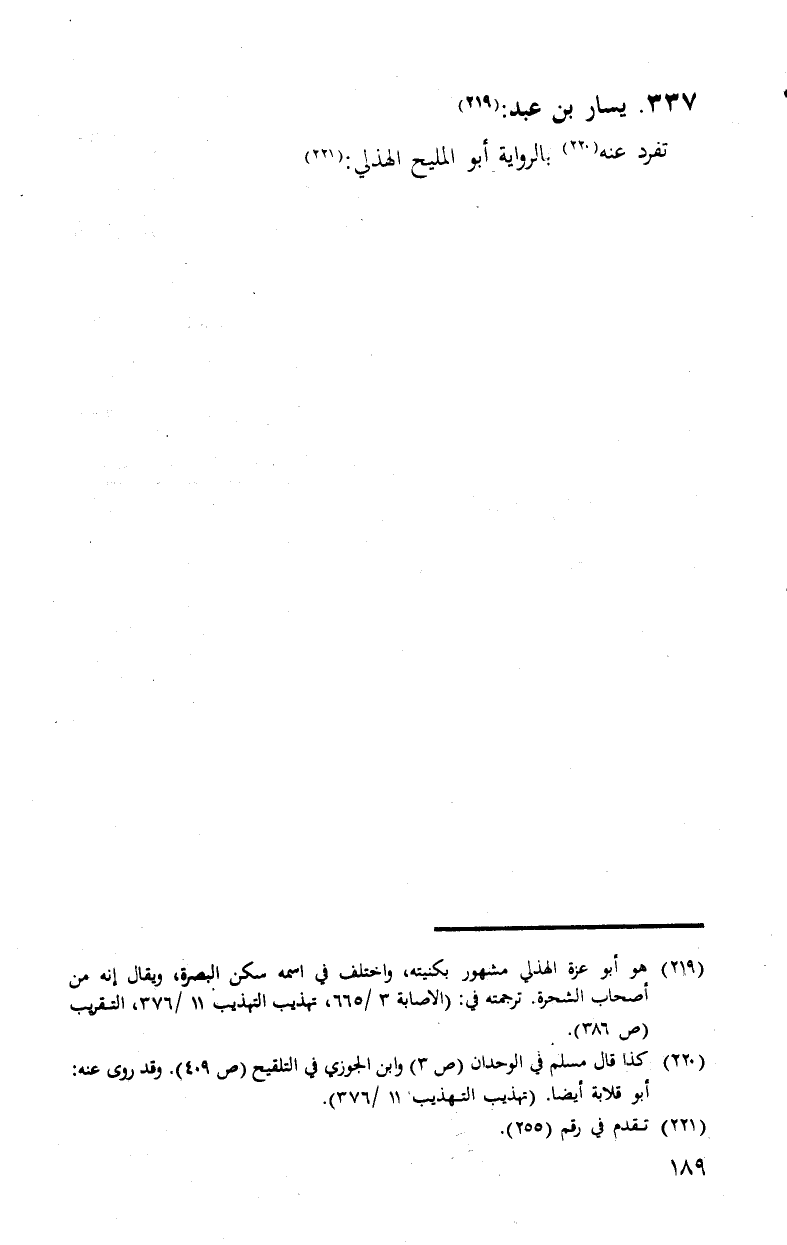 ٣٣٧. يسار بن عبد:(٢١٩)
تفرد عنه(٢٢٠) بالرواية أبو المليح الهذلي:(٢٢١)
(٢١٩) هو أبو عزة الهذلي مشهور بكنيته، واختلف في اسمه سكن البصرة، ويقال إنه من
أصحاب الشحرة. ترجمته في: (الاصابة ٣ /٦٦٥، تهذيب التهذيب ١١ /٣٧٦، التقريب
(ص ٣٨٦).
(٢٢٠) كذا قال مسلم في الوحدان (ص ٣) وابن الجوزي في التلقيح (ص ٤٠٩). وقد روى عنه:
أبو قلابة أيضا. (تهذيب التهذيب ١١ /٣٧٦).
(٢٢١) تقدم في رقم (٢٥٥).
١٨٩